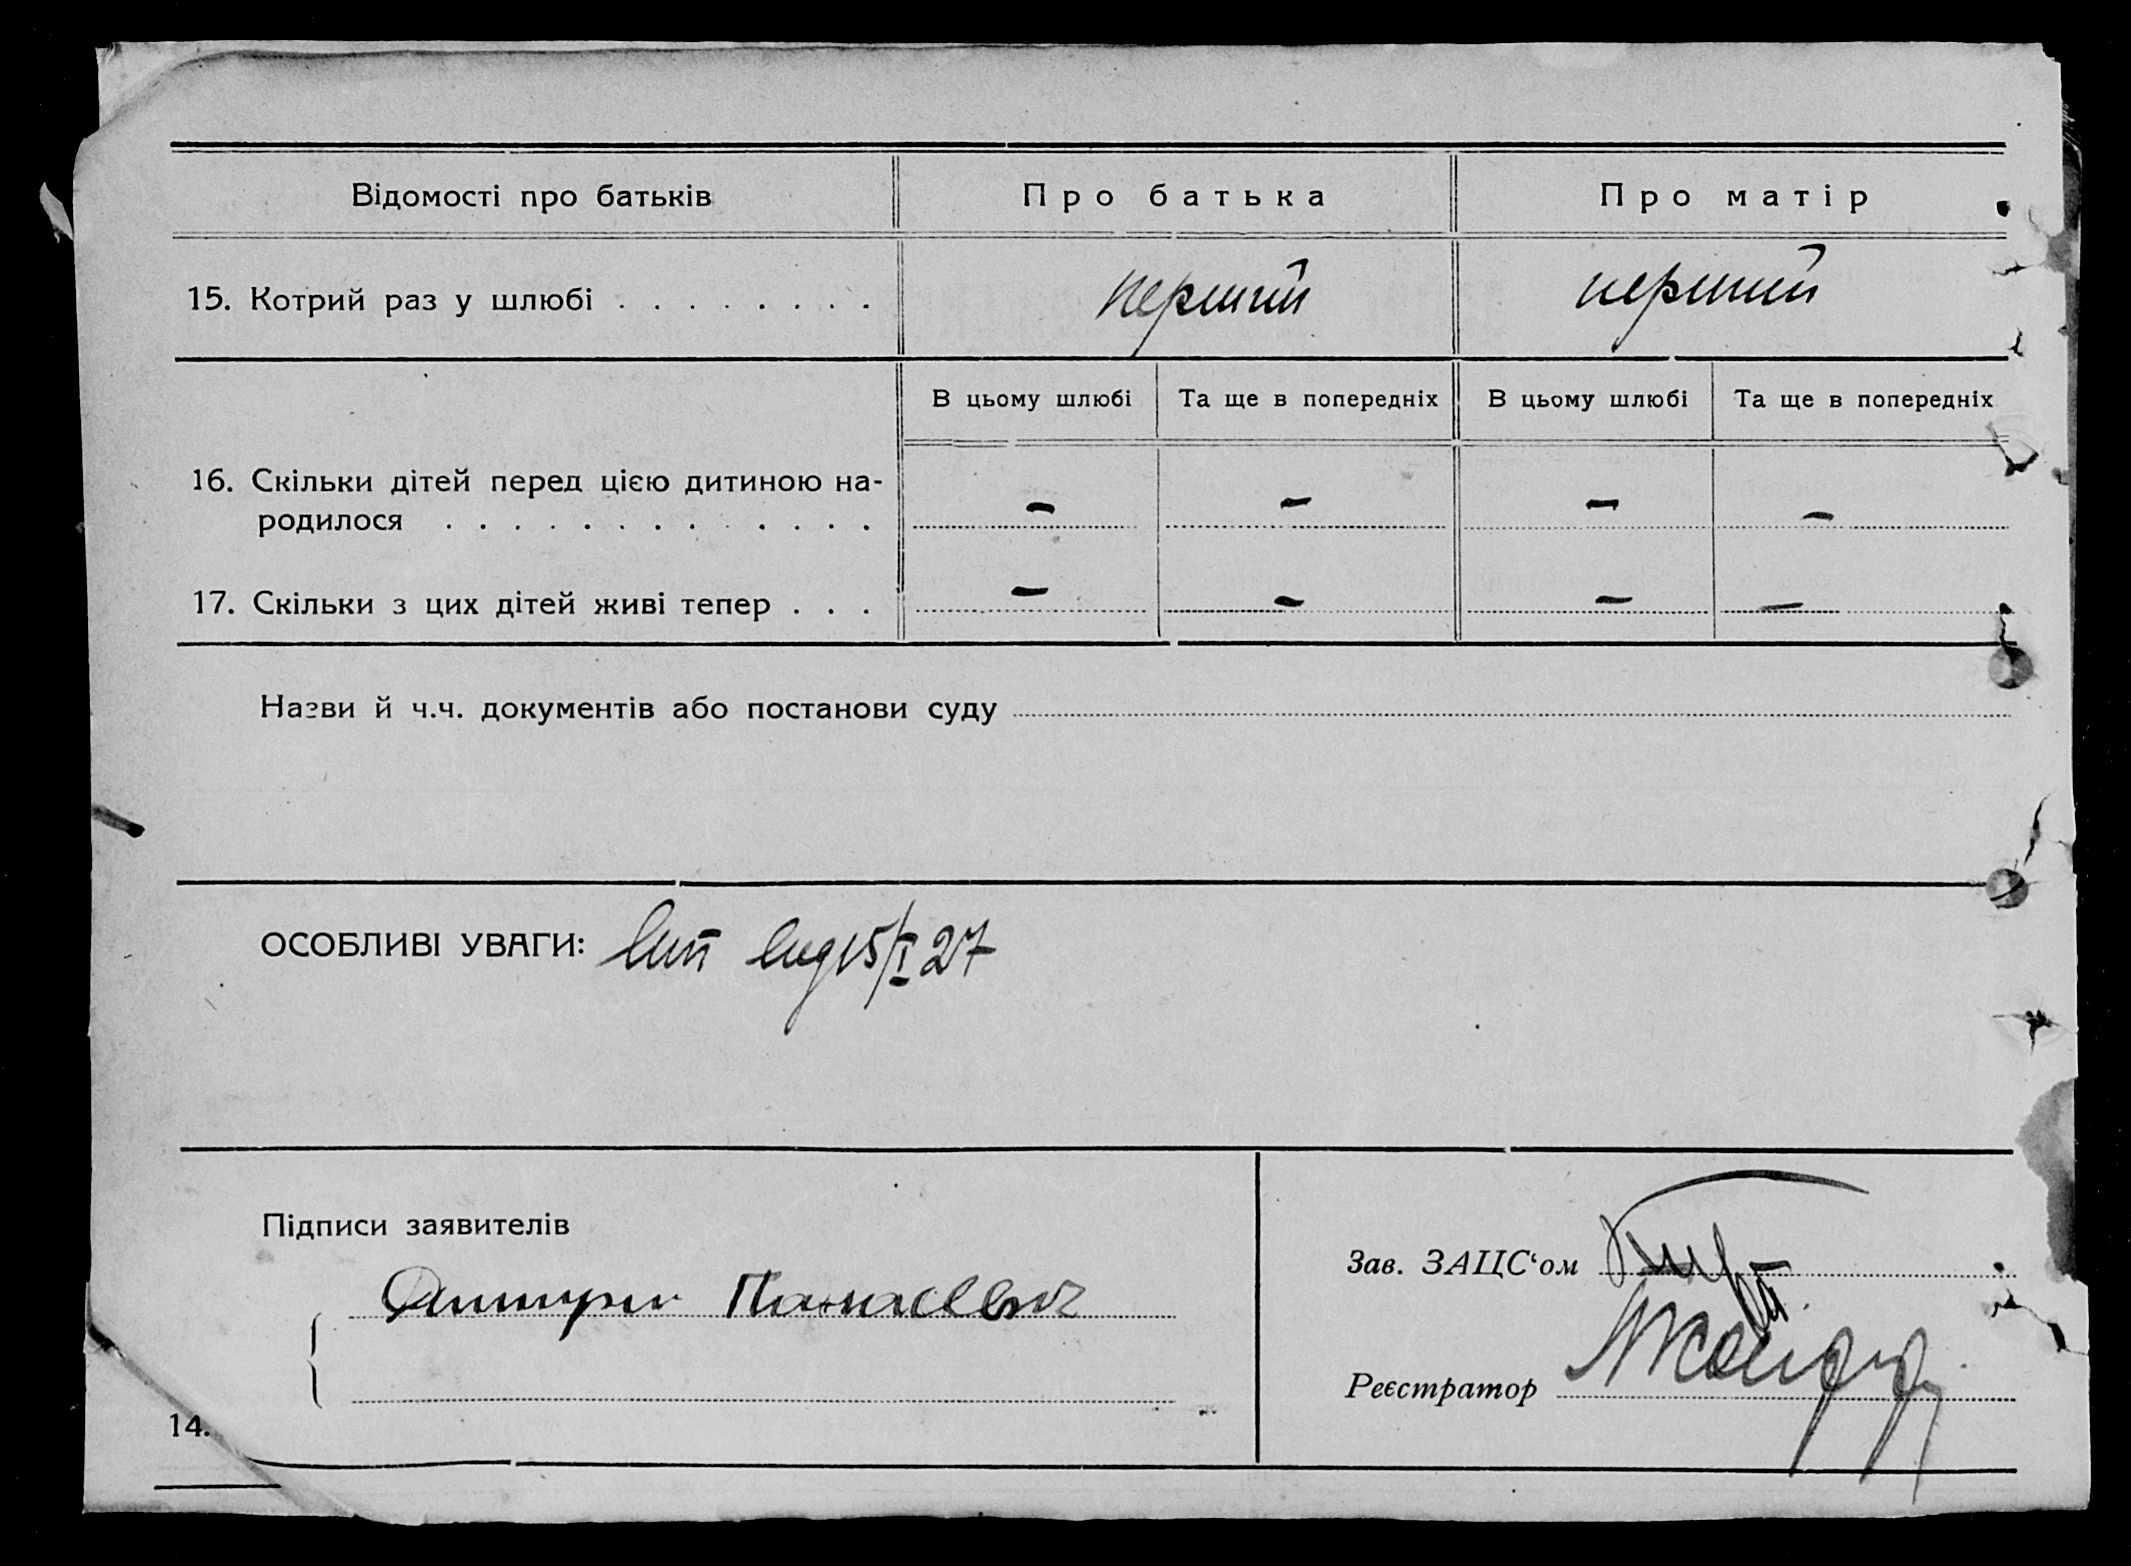 Відомості про батьків
Про батька
Про матір
15. Котрий раз у шлюбі . . . . . . . .
перший
перший
В цьому шлюбі
Та ще в попередніх
В цьому шлюбі
Та ще в попередніх
16. Скільки дітей перед цією дитиною на-
родилося . . . . . . . . . . . . .
– – – –
17. Скільки з цих дітей живі тепер . . .
– – – –
Назви й ч.ч. документів або постанови суду
ОСОБЛИВІ УВАГИ: 15/I 27
Підписи заявителів
Зав. ЗАЦС‘ом
Реєстратор
14.